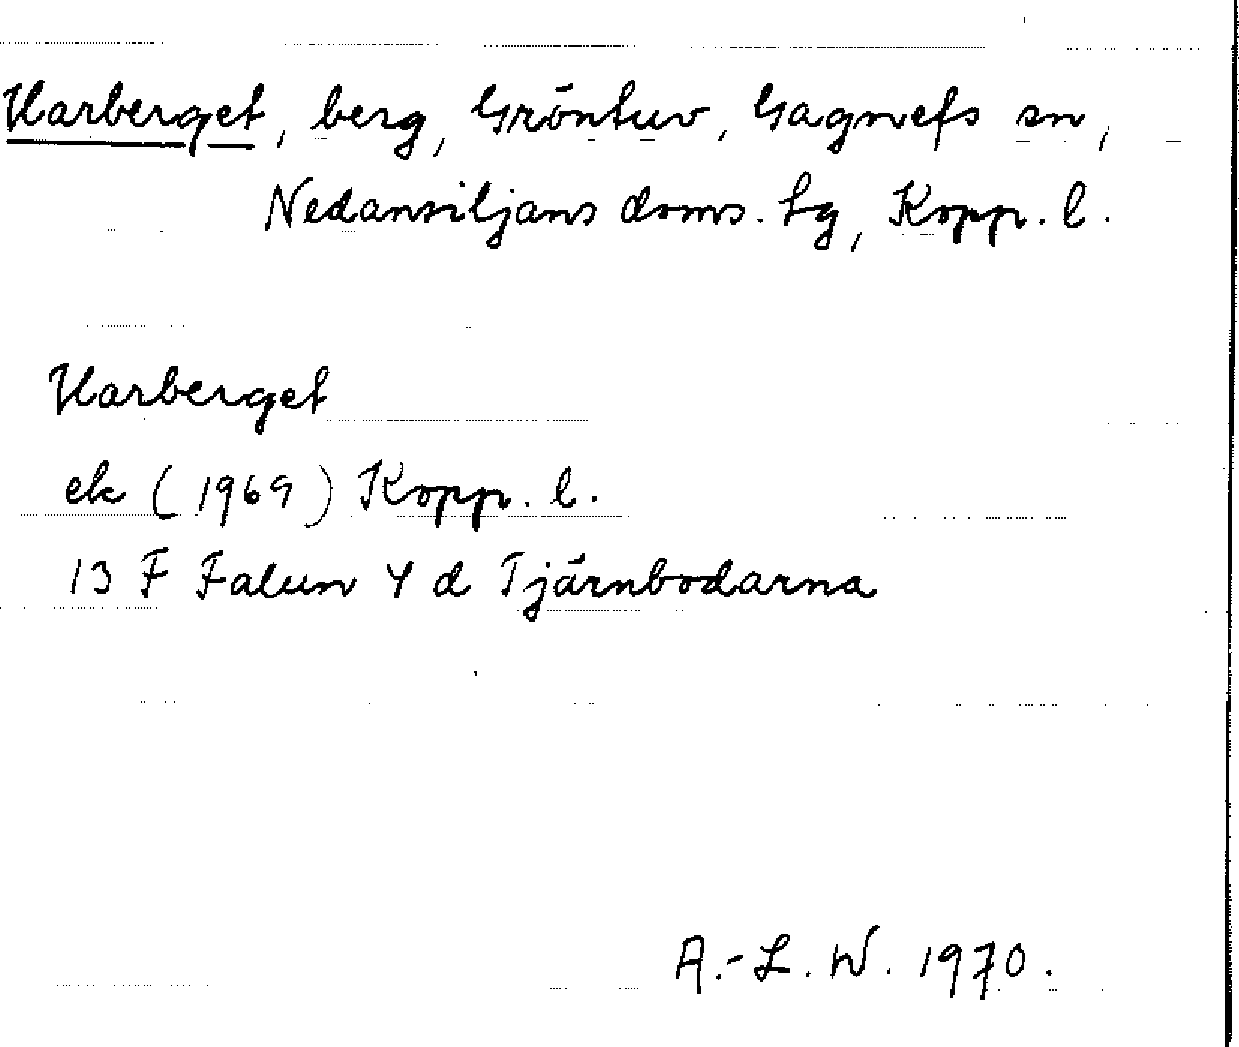 Harberget, berg, Gröntuv, Gagnefs sn,
Nedansiljans doms. tg, Kopp. l.
Harberget
ek (1969) Kopp. l.
13 F Falun 4 d Tjärnbodarna
A.-L. W. 1970.